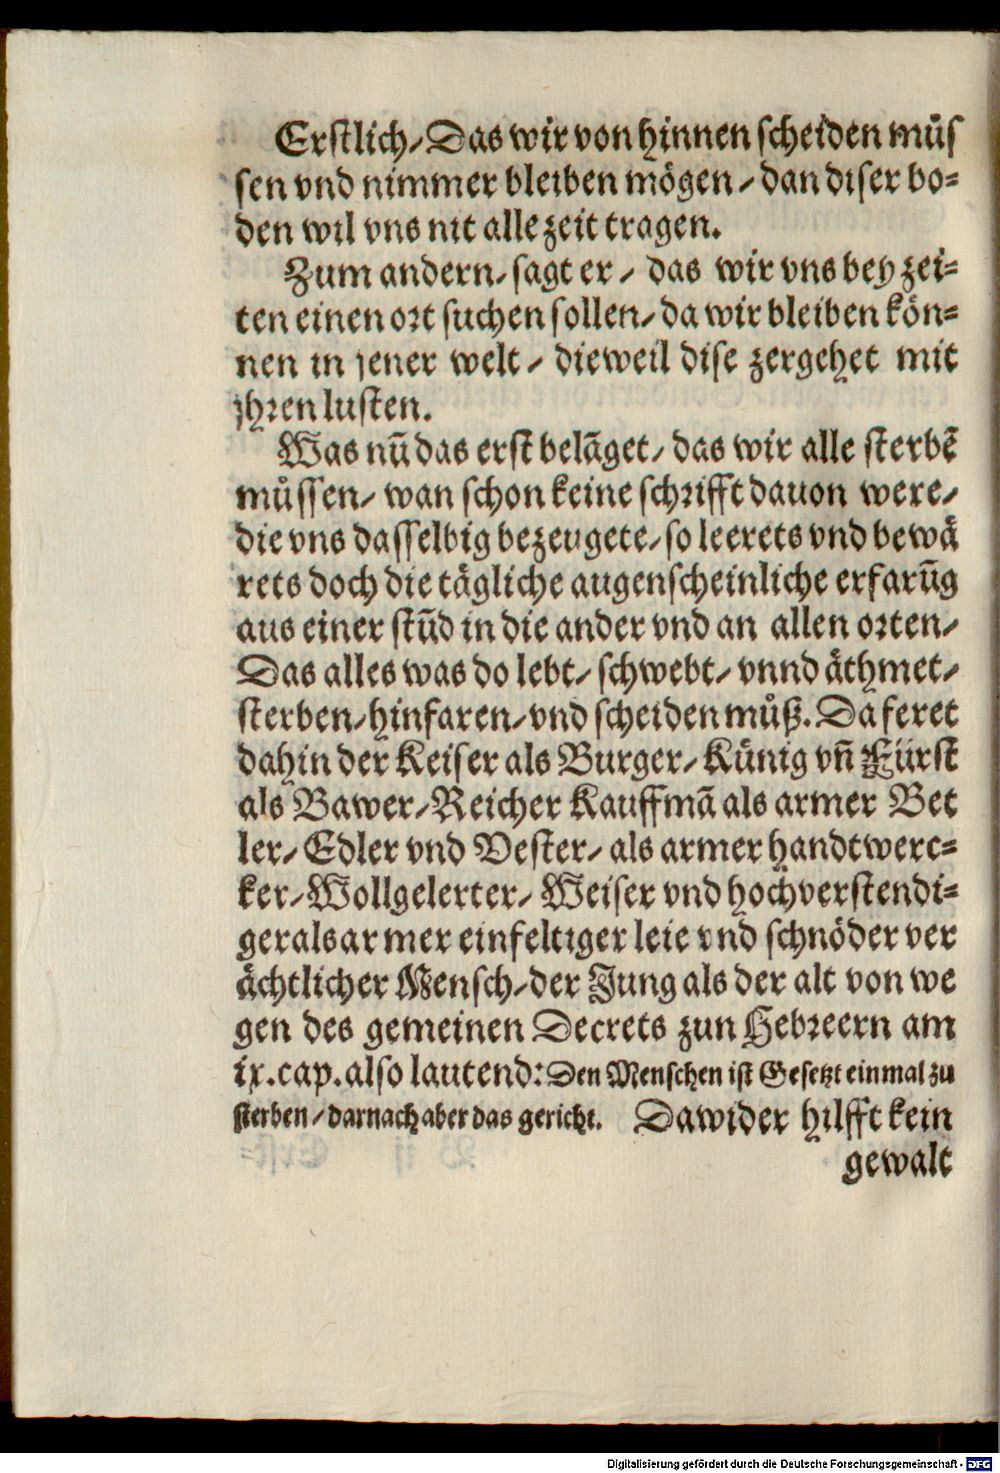 Erstlich/ Das wir von hinnen scheiden müs
sen vnd nimmer bleiben mögen/ dan diser bo-
den wil vns nit alle zeit tragen.
Zum andern/ sagt er/ das wir vns bey zei-
ten einen ort suchen sollen/ da wir bleiben kön-
nen in jener welt/ dieweil dise zergehet mit
jhren lusten.
Was nũ das erst belãget/ das wir alle sterbẽ
müssen/ wan schon keine schrifft dauon were/
die vns dasselbig bezeugete/ so leerets vnd bewä
rets doch die tägliche augenscheinliche erfarũg
aus einer stũd in die ander vnd an allen orten/
Das alles was do lebt/ schwebt/ vnnd äthmet/
sterben/ hinfaren/ vnd scheiden můß. Da feret
dahin der Keiser als Burger/ Künig vñ Fürst
als Bawer/ Reicher Kauffmã als armer Bet
ler/ Edler vnd Vester/ als armer handtwerc-
ker/ Wollgelerter/ Weiser vnd hochverstendi-
ger als armer einfeltiger leie vnd schnöder ver
ächtlicher Mensch/ der Jung als der alt von we
gen des gemeinen Decrets zun Hebreern am
ix. cap. also lautend: Den Menschen ist Gesetzt einmal zu
sterben/ darnach aber das gericht. Dawider hilfft kein
gewalt
Digitalisierung gefördert durch die Deutsche Forschungsgemeinschaft - DFG